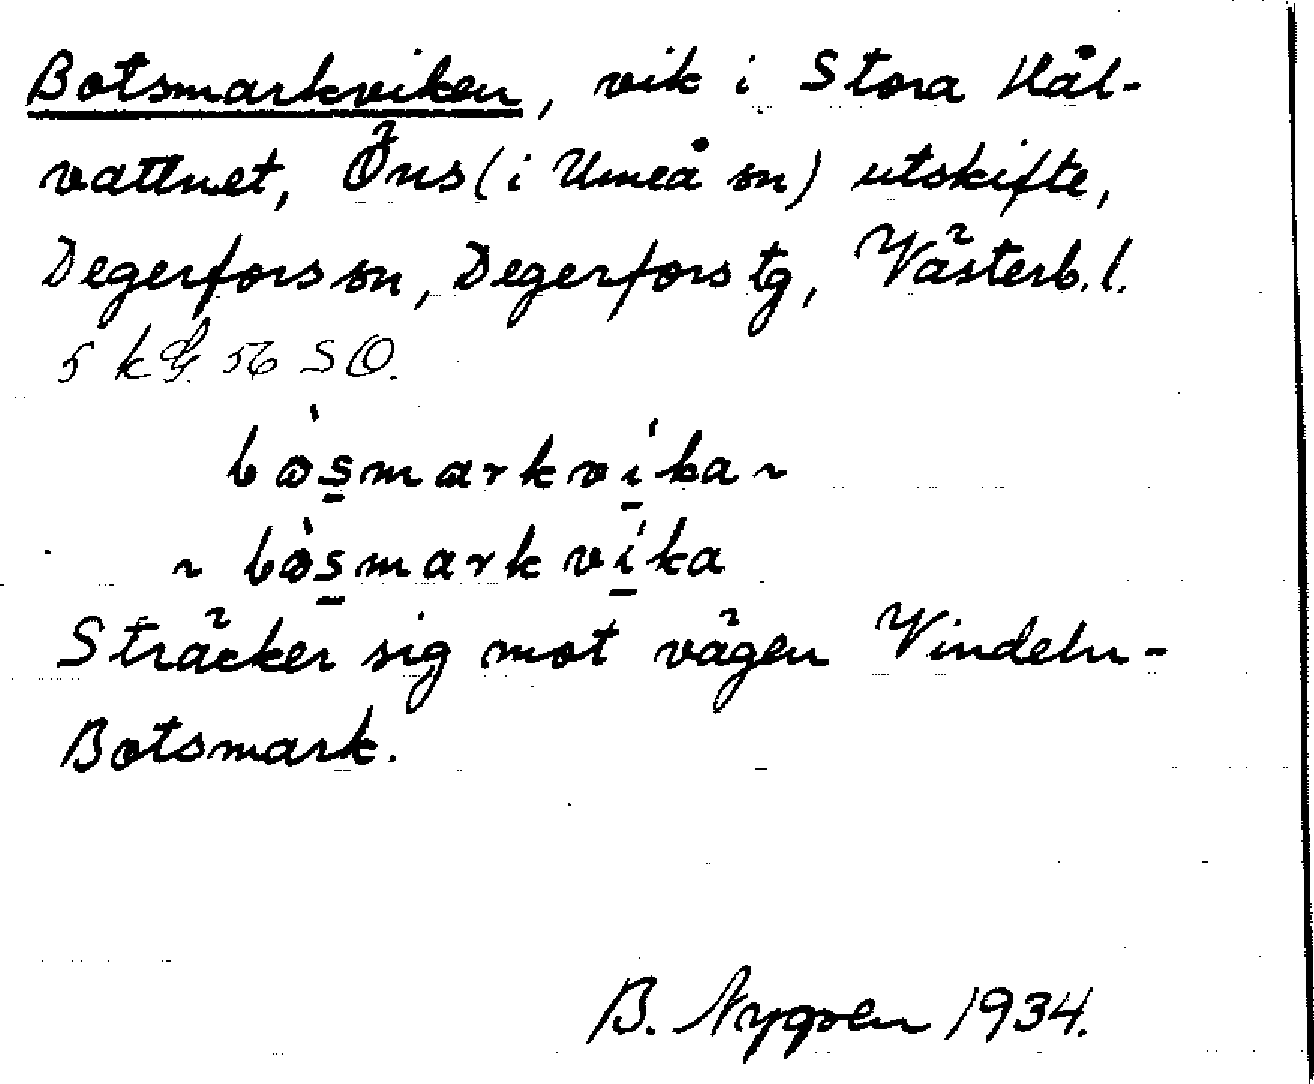 Botsmarkviken, vik i Stora Hål-
vattnet, Öns (i Umeå sn) utskifte,
Degerfors sn, Degerfors tg, Västerb. l.
56 SO.
bòsmarkvíka ~
~ bòsmarkvíka
Sträcker sig mot vägen Vindeln-
Botsmark.
B. Nygren 1934.